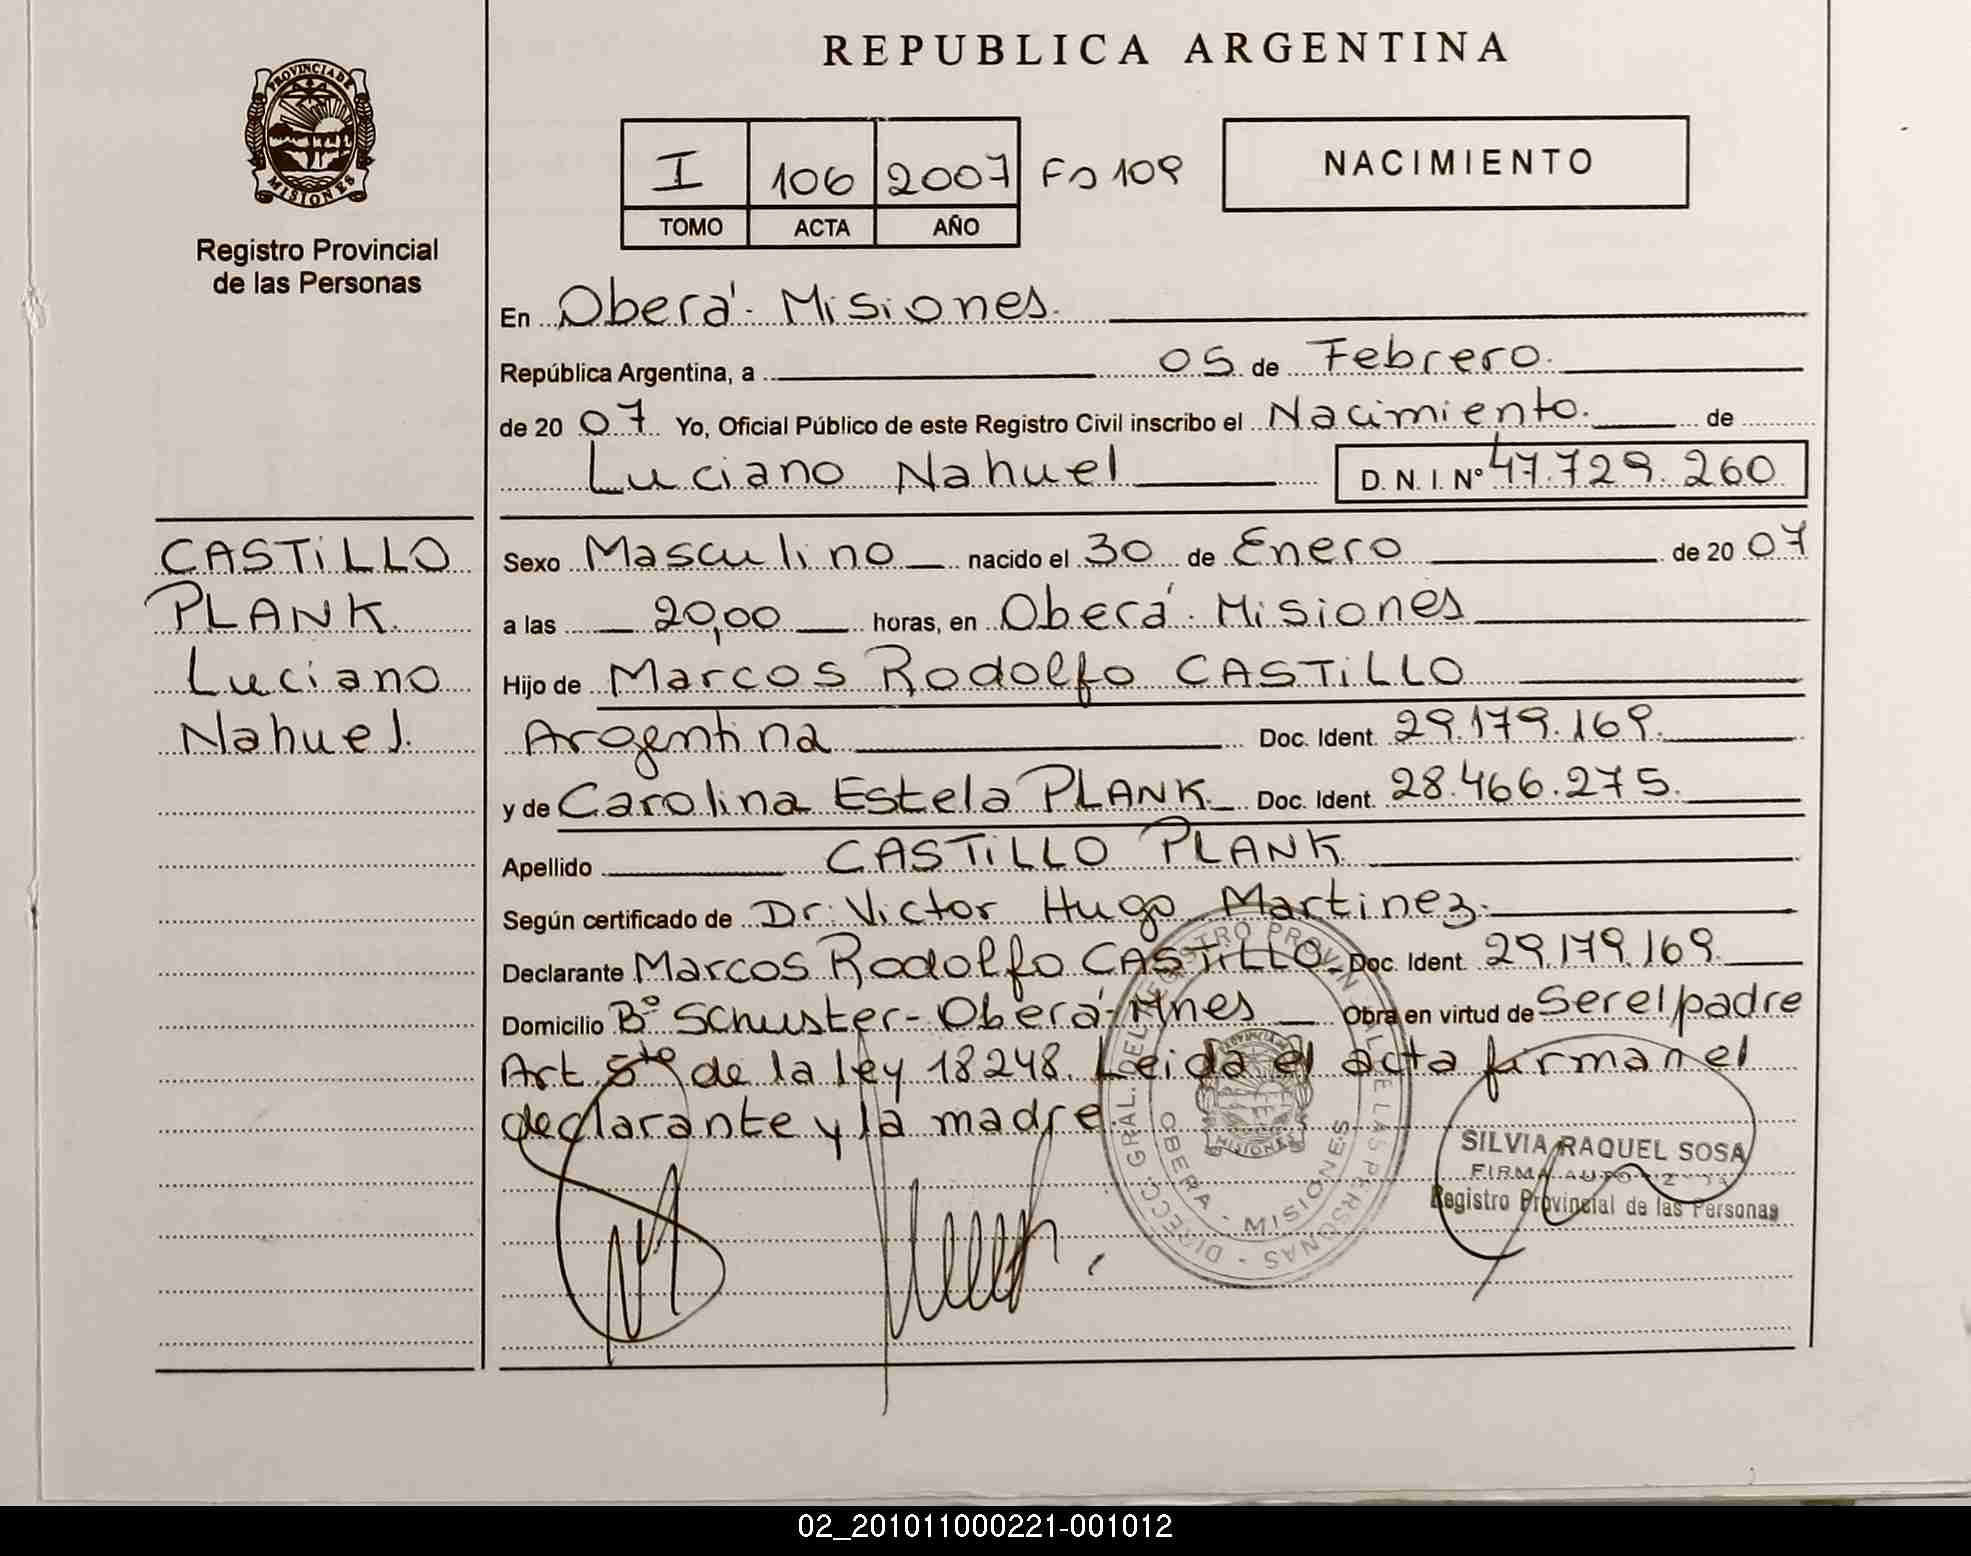 REPUBLICA ARGENTINA
PROVINCIA DE MISIONES
Registro Provincial
de las Personas
I 106 2007 Fo 109
TOMO ACTA AÑO
NACIMIENTO
En Oberá - Misiones.
República Argentina, a 05 de Febrero.
de 2007 Yo, Oficial Público de este Registro Civil inscribo el Nacimiento. de
Luciano Nahuel D. N. I. Nº 47.729.260
CASTiLLO
PLANK.
Luciano
Nahuel.
Sexo Masculino nacido el 30 de Enero de 2007
a las 20,00 horas, en Oberá - Misiones
Hijo de Marcos Rodolfo CASTiLLO
Argentina Doc. Ident. 29.179.169.
y de Carolina Estela PLANK Doc. Ident. 28.466.275.
Apellido CASTiLLO PLANK
Según certificado de Dr. Victor Hugo Martinez.
Declarante Marcos Rodolfo CASTiLLO Doc. Ident. 29.179.169.
Domicilio Bº Schuster - Oberá - Mnes Obra en virtud de Ser el padre
Art. 5to de la ley 18248. Leida el acta firman el
declarante y la madre.
DIRECC. GRAL. DEL REGISTRO PROVINCIAL DE LAS PERSONAS
OBERA - MISIONES
SILVIA RAQUEL SOSA
FIRMA AUTORIZADA
Registro Provincial de las Personas
02_201011000221-001012